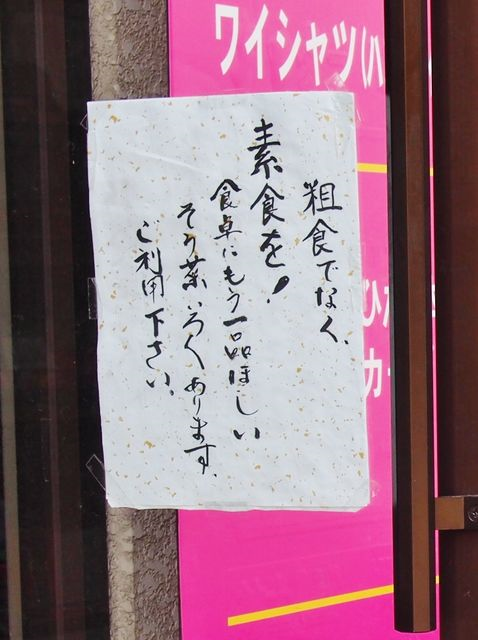 ワイシャツい
粗食でなく、
素食を!
食卓にもう一品ほしい
そう菜いろくあります。
ご利用下さい。
ひ
カ